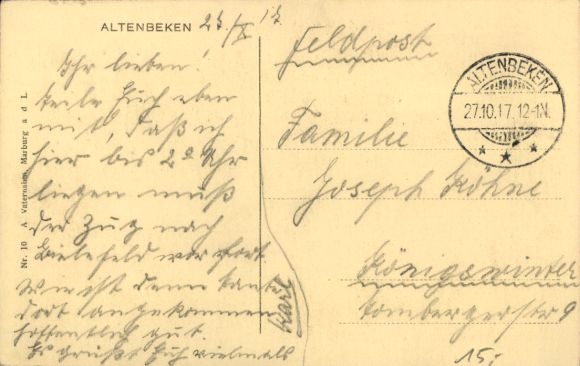 ALTENBEKEN 27./X 17
Ihr lieben!
Teile Euch eben
mit, daß ich
hier bis 2º Uhr
liegen muß
der Zug nach
Bielefeld war fort.
Wie ist denn Tante
dort angekommen
hoffentlich gut.
Es grüßt Euch vielmals
Karl
Nr. 10 A Vaternahm, Marburg a d L
Feldpost
ALTENBEKEN
27.10.17. 12-1N.
Familie
Joseph Köhne
Königswinter
Tombergerstr 9
15.-